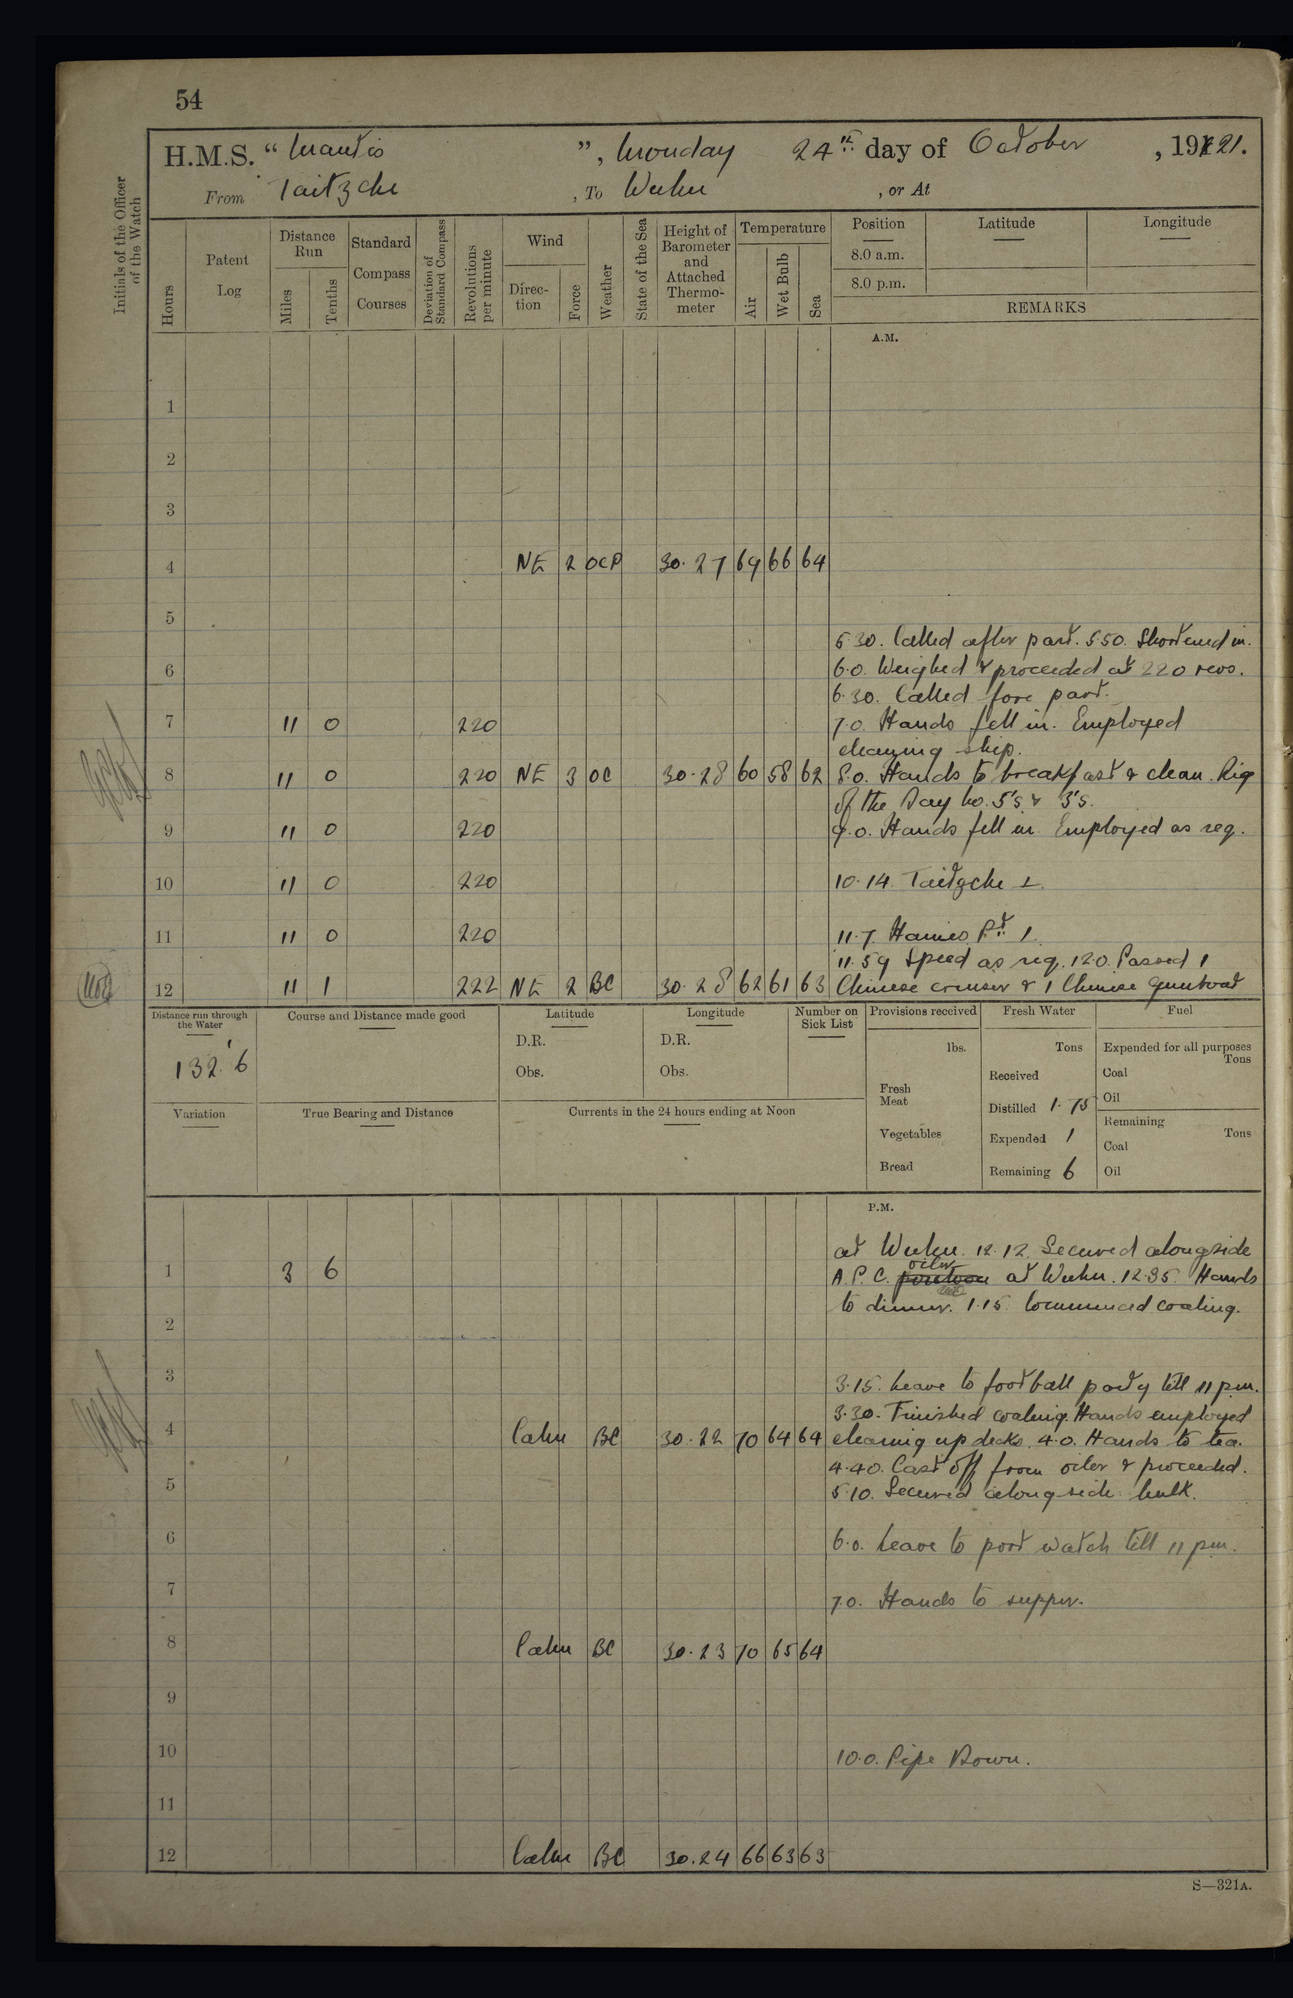 54
H.M.S. “ Mantis ”, Monday 24th day of October , 1921.
From Taitzche , To Wuhu , or At
Initials of the Officer of the Watch
Hours
Patent Log
Distance Run
Miles
Tenths
Standard Compass Courses
Deviation of Standard Compass
Revolutions per minute
Wind
Direction
Force
Weather
State of the Sea
Height of Barometer and Attached Thermometer
Temperature
Air
Wet Bulb
Sea
Position
8.0 a.m.
8.0 p.m.
Latitude
Longitude
REMARKS
A.M.
1
2
3
4 NE 2 OCP 30.27 69 66 64
5
5.30. Called after part. 5.50. Shortened in.
6 6.0. Weighed & proceeded at 220 revs.
6.30. Called fore part.
7 11 0 220 7.0. Hands fell in. Employed
cleaning ship.
8 11 0 220 NE 3 OC 30.28 60 58 62 8.0. Hands to breakfast & clean. Rig
of the Day No. 5's & 3's.
9 11 0 220 9.0. Hands fell in. Employed as req.
10 11 0 220 10.14 Taitzche ⊥
11 11 0 220 11.7. Pt. 1.
11.59 Speed as req. 12.0. Passed 1
12 11 1 222 NE 2 BC 30.28 62 61 63 Chinese cruiser & 1 Chinese gunboat
Distance run through the Water
132.6
Course and Distance made good
Latitude
D.R.
Obs.
Longitude
D.R.
Obs.
Number on Sick List
Provisions received
lbs.
Fresh Meat
Vegetables
Bread
Fresh Water
Tons
Received
Distilled 1.75
Expended 1
Remaining 6
Fuel
Expended for all purposes
Tons
Coal
Oil
Remaining
Tons
Coal
Oil
Variation
True Bearing and Distance
Currents in the 24 hours ending at Noon
P.M.
at Wuhu. 12.12. Secured alongside
oiler
1 3 6 A.P.C. pontoon at Wuhu. 12.35. Hands
to dinner. 1.15. Commenced coaling.
2
3 3.15. Leave to football party till 11 pm.
3.30. Finished coaling. Hands employed
4 Calm BC 30.22 70 64 64 cleaning up decks. 4.0. Hands to tea.
4.40. Cast off from oiler & proceeded.
5 5.10. Secured alongside hulk.
6 6.0. Leave to port watch till 11 pm.
7 7.0. Hands to supper.
8 Calm BC 30.23 70 65 64
9
10 10.0. Pipe Down.
11
12 Calm BC 30.24 66 63 63
S—321A.